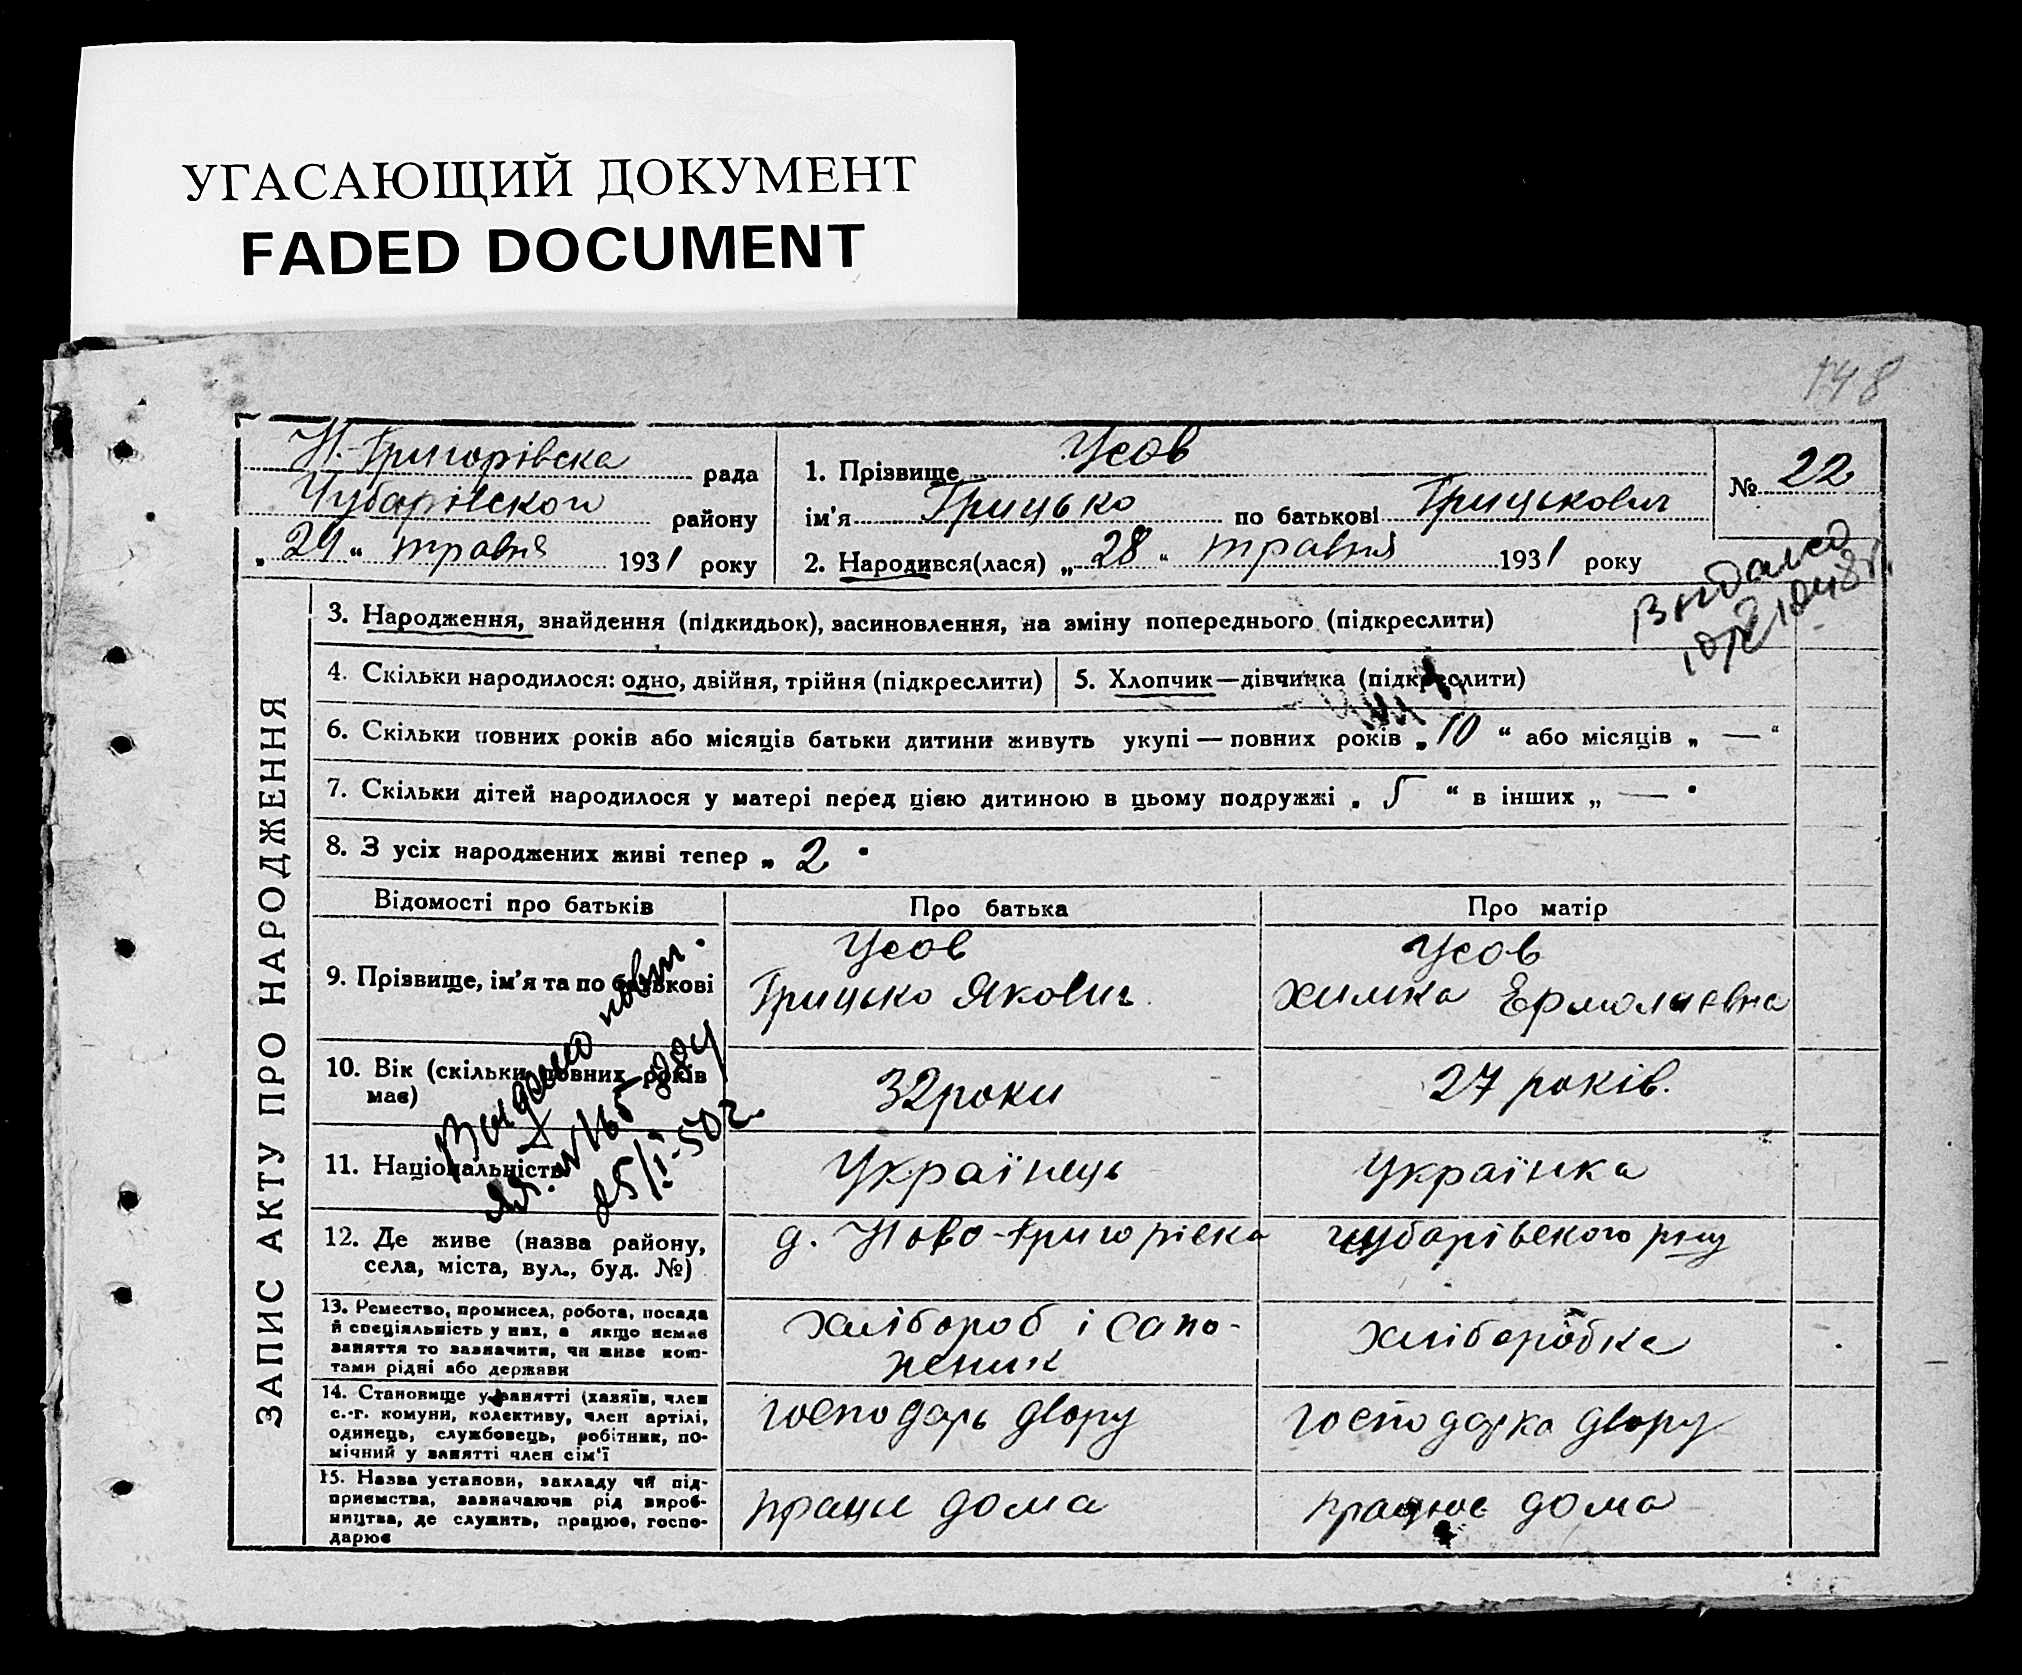 УГАСАЮЩИЙ ДОКУМЕНТ
FADED DOCUMENT
148
Н.-Григорівска рада
Чубарівского району
„ 29 “ травня 1931 року
1. Прізвище Усов
ім'я Грицько по батькові Грицькович
2. Народився(лася) „ 28 “ травня 1931 року
№ 22
Видано
ЗАПИС АКТУ ПРО НАРОДЖЕННЯ
3. Народження, знайдення (підкидьок), засиновлення, на зміну попереднього (підкреслити)
4. Скільки народилося: одно, двійня, трійня (підкреслити)
5. Хлопчик—дівчинка (підкреслити)
6. Скільки повних років або місяців батьки дитини живуть укупі — повних років „ 10 “ або місяців „ — “
7. Скільки дітей народилося у матері перед цією дитиною в цьому подружжі „ 5 “ в інших „ — “
8. З усіх народжених живі тепер „ 2 “
Відомості про батьків
Про батька
Про матір
9. Прізвище, ім'я та по батькові
Усов
Грицько Якович
Усов
Химка Ермолаєвна
10. Вік (скільки повних років
має)
32 роки
27 років.
Выдано повт.
25/I-50 г.
11. Національність
Українець
Українка
12. Де живе (назва району,
села, міста, вул., буд. №)
д. Ново-Григорівка
Чубарівского р-ну
13. Ремество, промисел, робота, посада
й спеціяльність у них, а якщо немає
заняття то зазначити, чи живе кош-
тами рідні або держави
Хлібороб і сапо-
жник
Хліборобка
14. Становище у занятті (хазяїн, член
с.-г. комуни, колективу, член артілі,
одинець, службовець, робітник, по-
мічний у занятті член сім'ї
господарь двору
господарка двору
15. Назва установи, закладу чи під-
приємства, зазначаюча рід вироб-
ництва, де служить, працює, госпо-
дарює
праце дома
працює дома